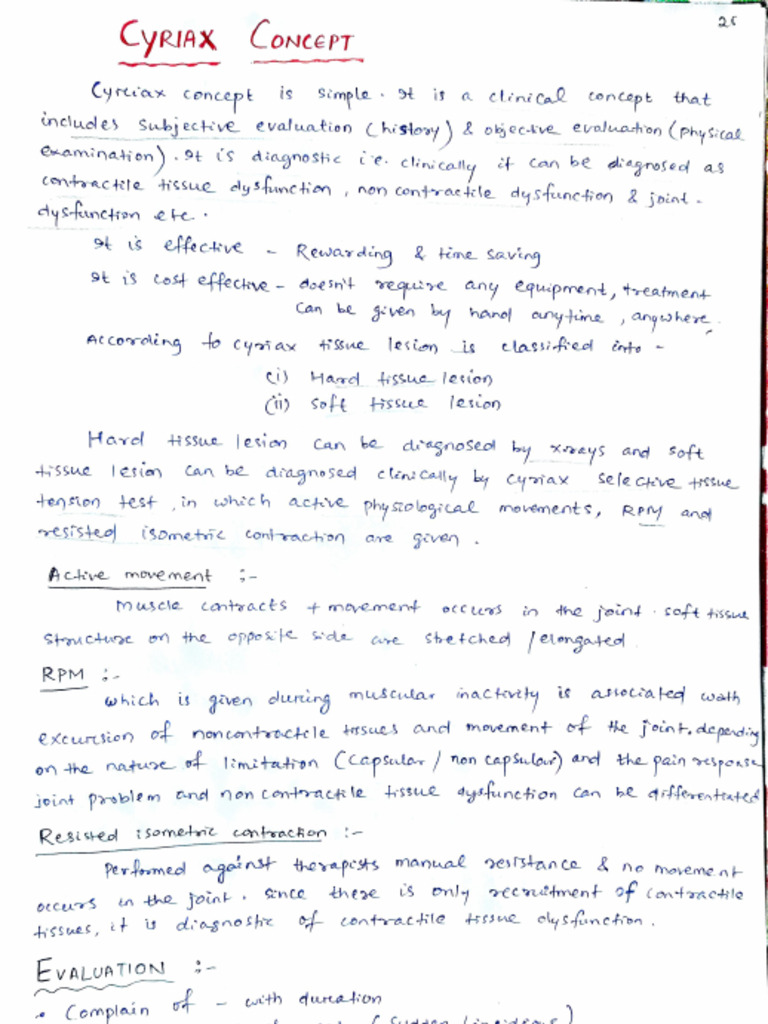 25
CYRIAX CONCEPT
Cyriax concept is simple. It is a clinical concept that
includes subjective evaluation (history) & objective evaluation (physical
examination). It is diagnostic i.e. clinically it can be diagnosed as
contractile tissue dysfunction, non contractile dysfunction & joint -
dysfunction etc.
It is effective - Rewarding & time saving
It is cost effective - doesn't require any equipment, treatment
can be given by hand anytime, anywhere.
According to cyriax tissue lesion is classified into -
(i) Hard tissue lesion
(ii) Soft tissue lesion
Hard tissue lesion can be diagnosed by x-rays and soft
tissue lesion can be diagnosed clinically by cyriax selective tissue
tension test, in which active physiological movements, RPM and
resisted isometric contraction are given.
Active movement :-
Muscle contracts + movement occurs in the joint. soft tissue
structure on the opposite side are stretched / elongated
RPM :-
which is given during muscular inactivity is associated with
excursion of noncontractile tissues and movement of the joint. depending
on the nature of limitation (capsular / non capsular) and the pain response
joint problem and non contractile tissue dysfunction can be differentiated
Resisted isometric contraction :-
Performed against therapists manual resistance & no movement
occurs in the joint. since there is only recruitment of contractile
tissues, it is diagnostic of contractile tissue dysfunction.
EVALUATION :-
• Complain of - with duration
(sudden / insidious)